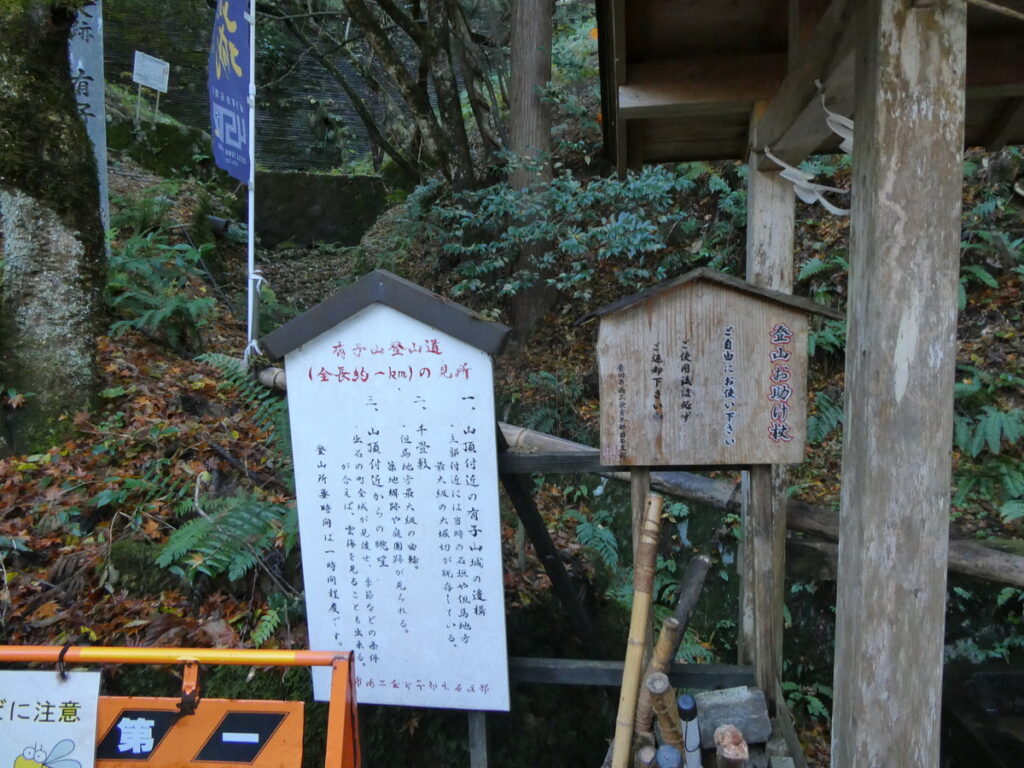 有子山登山道
(全長約一km)の見所
一、山頂付近の有子山城の遺構
・上部付近には当時の石垣や但馬地方
最大級の大堀切が現存している。
二、千畳敷
・但馬地方最大級の曲輪。
築地塀跡や庭園跡が見られる。
三、山頂付近からの眺望
出石の町全域が見渡せ、季節などの条件
が合えば、雲海を見ることも出来る。
登山所要時間は一時間程度です。
登山お助け杖
ご自由にお使い下さい
ご使用後は必ず
ご返却下さい
跡 有子
に注意
第一